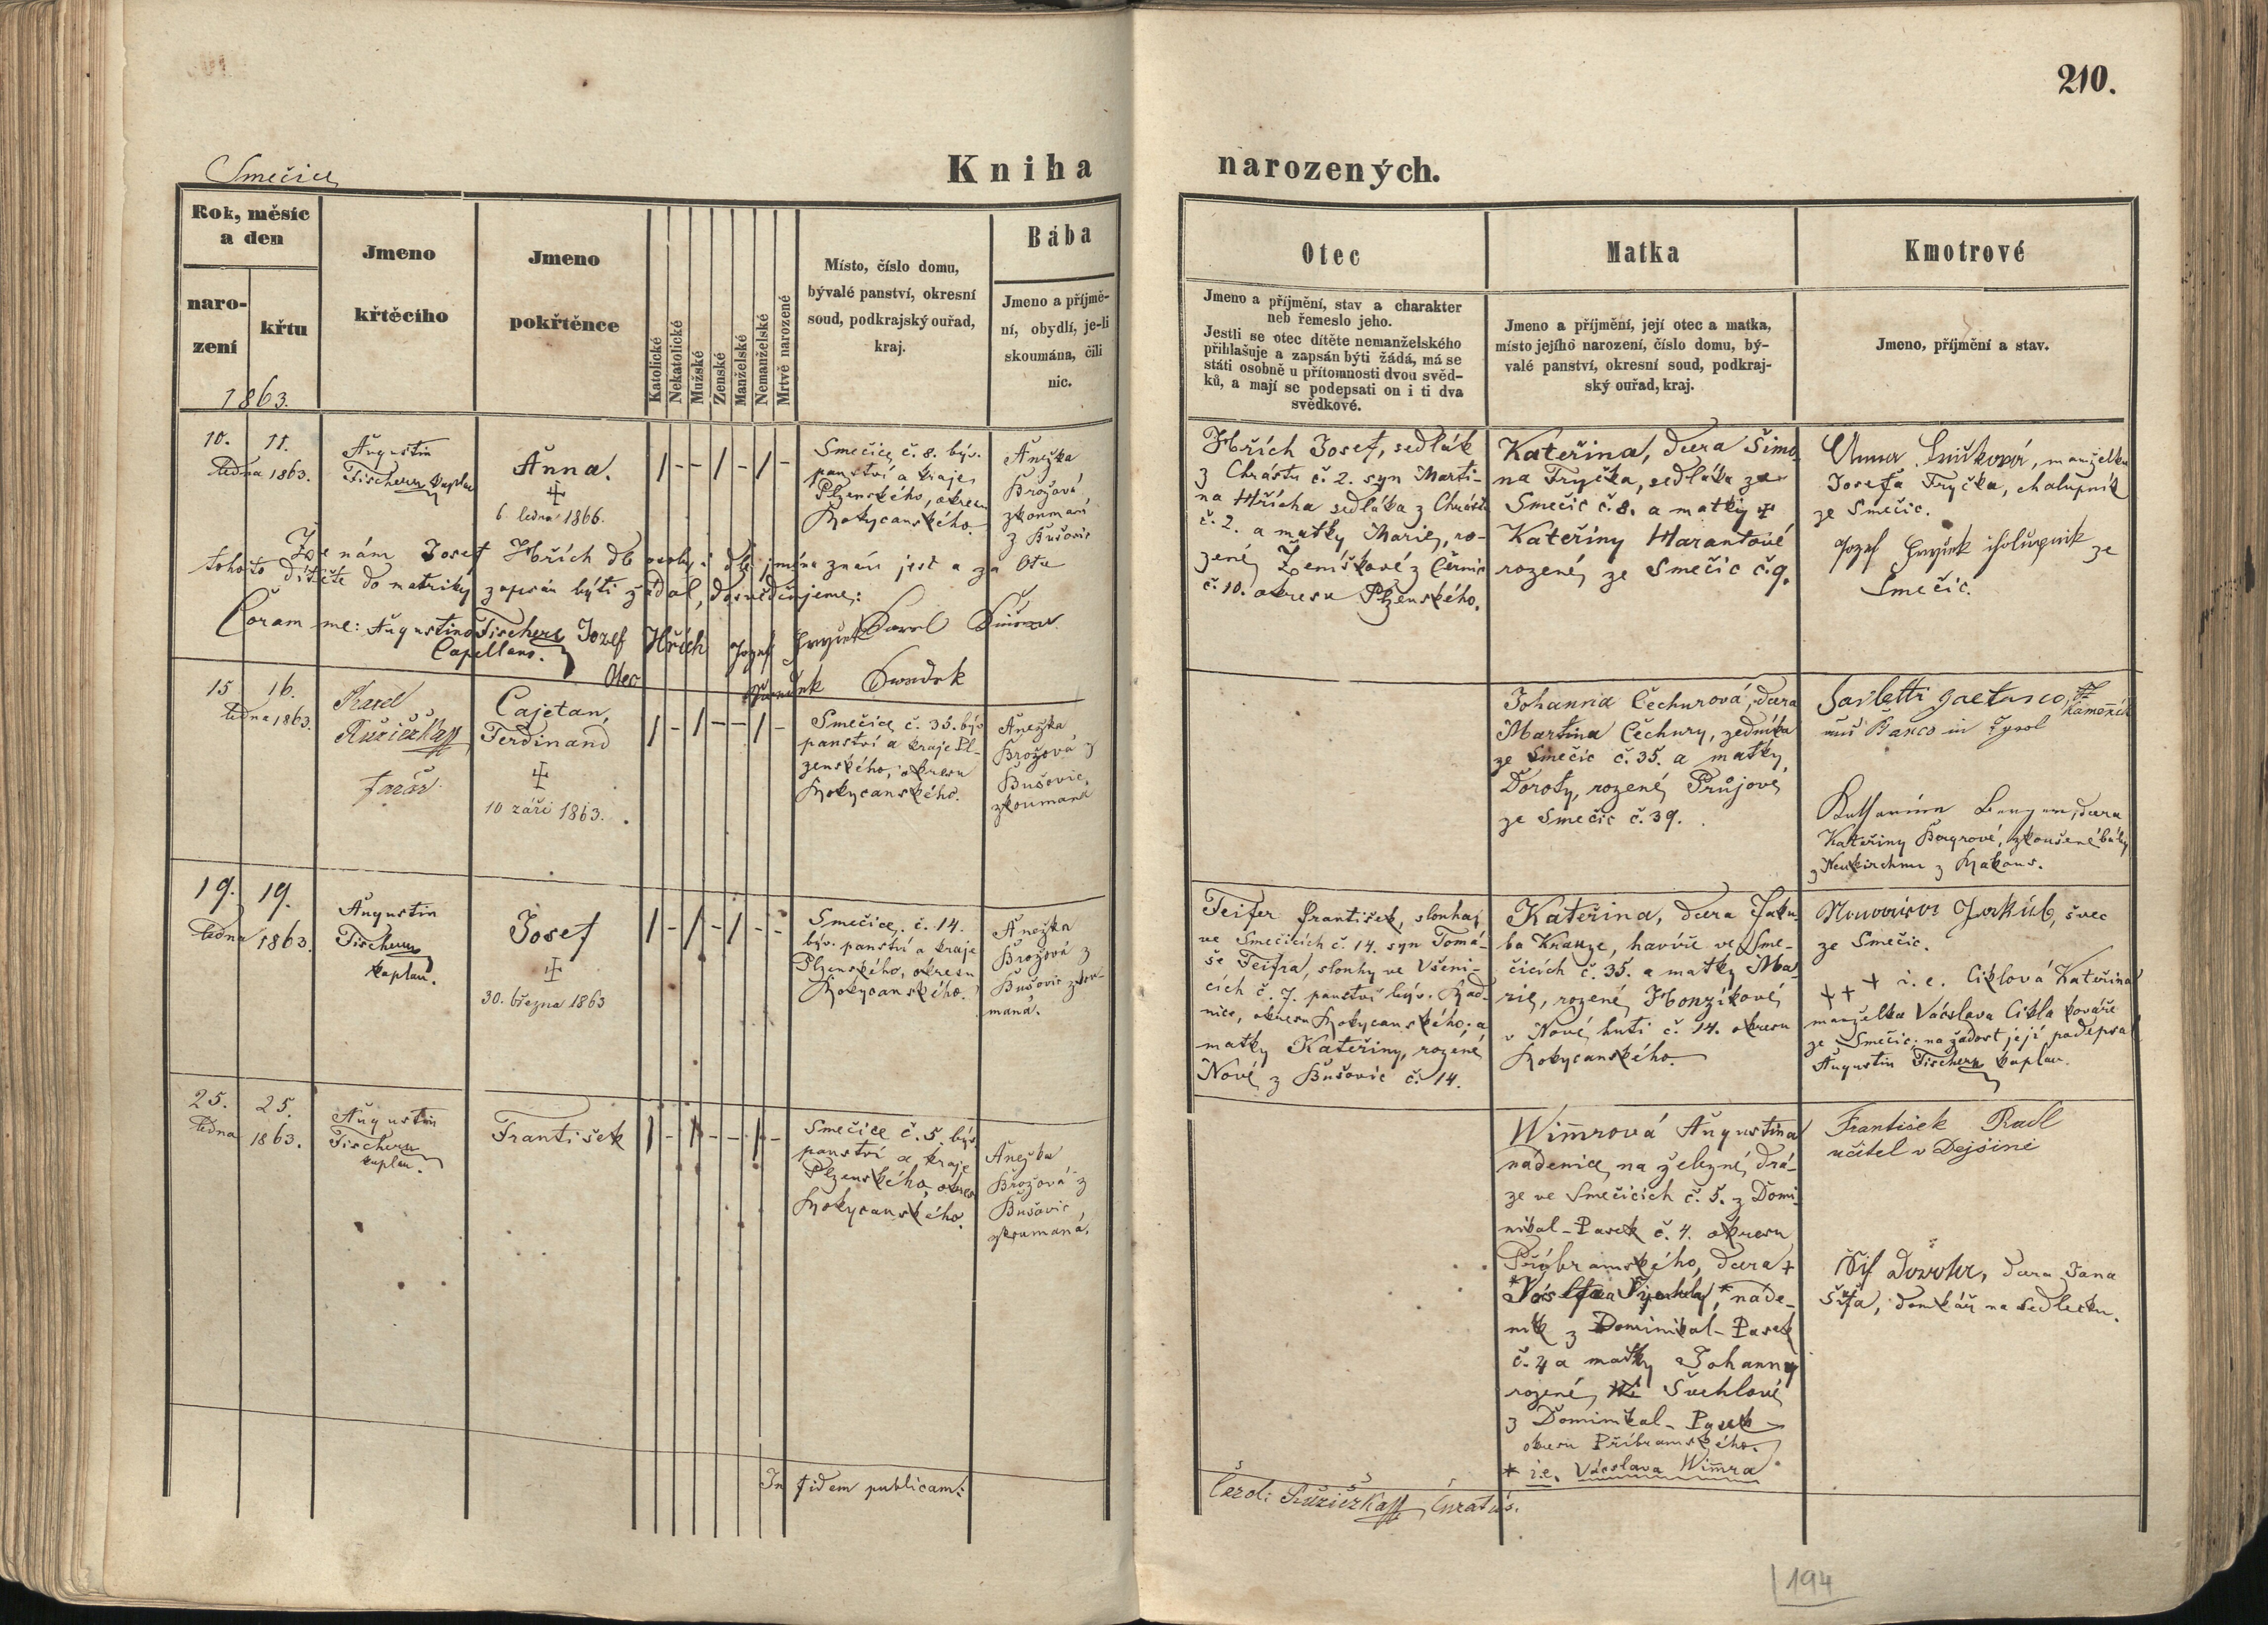 210.
Smečice
Kniha narozených.
Rok, měsíc
a den
naro-
zení
křtu
1863.
Jmeno
křtěcího
Jmeno
pokřtěnce
Katolické
Nekatolické
Mužské
Ženské
Manželské
Nemanželské
Mrtvě narozené
Místo, číslo domu,
bývalé panství, okresní
soud, podkrajský ouřad,
kraj.
Bába
Jmeno a příjmě-
ní, obydlí, je-li
skoumána, čili
nic.
Otec
Jmeno a příjmění, stav a charakter
neb řemeslo jeho.
Jestli se otec dítěte nemanželského
přihlašuje a zapsán býti žádá, má se
státi osobně u přítomnosti dvou svěd-
ků, a mají se podepsati on i ti dva
svědkové.
Matka
Jmeno a příjmění, její otec a matka,
místo jejího narození, číslo domu, bý-
valé panství, okresní soud, podkraj-
ský ouřad, kraj.
Kmotrové
Jmeno, příjmění a stav.
10. 11.
ledna 1863.
Augustin
Fischer kaplan
Anna.
6. ledna 1866.
/ - - / - / -
Smečice č. 8. býv.
panství a kraje
Plzenského, okresu
Rokycanského
Anežka
Brožová
zkoumaná
z Bušovic
Že nám Josef Hřích dle osoby i dle jména znám jest a za Otce
tohoto dítěte do matriky zapsán býti žádal, dosvědčujeme:
Coram me: Augustino Fischer
Capellano.
Jozef Hřích
Otec
Jozef
Karel
Svedek
Hřích Josef, sedlák
z Chrástu č. 2. syn Marti-
na Hřícha sedláka z Chrástu
č. 2. a matky Marie, ro-
zené Ženíškové z Černic
č. 10. okresu Plzenského.
Kateřina, dcera Šimo
na Tryčka, sedláka ze
Smečic č. 8. a matky
Kateřiny Harantové
rozené ze Smečic č. 9.
Anna manželka
Josefa Tryčka, chalupník
ze Smečic.
Jozef ze
Smečic.
15 16.
ledna 1863.
Karel
Růžička
farář
Cajetan,
Ferdinand
10 září 1863.
/ - / - - / -
Smečice č. 35. býv
panství a kraje Pl-
zenského, okresu
Rokycanského.
Anežka
Brožová z
Bušovic,
zkoumaná
Johanna Čechurová, dcera
Martina Čechury, zedníka
ze Smečic č. 35. a matky
Doroty, rozené Průjové
ze Smečic č. 39.
Gaetano,
aus in Tyrol
Katharina dcera
Kateřiny Bergrové, zkoušené báby
z Neukirchnu z Rakous.
19. 19.
ledna 1863.
Augustin
Fischer
kaplan.
Josef
30. března 1863
/ - / - / - -
Smečice, č. 14.
býv. panství a kraje
Plzenského, okresu
Rokycanského.
Anežka
Brožová z
Bušovic zkou-
maná.
Feifer František, slouha
ve Smečicích č. 14. syn Tomá-
še Feifra, slouhy ve Všeni-
cích č. 7. panství býv. Rad-
nice, okresu Rokycanského; a
matky Kateřiny, rozené
Nové, z Bušovic č. 14.
Kateřina, dcera Jaku
ba Krauze, havíře ve Sme-
čicích č. 35. a matky Ma-
rie, rozené Honzíkové
v Nové huti č. 14. okresu
Rokycanského.
Jakub, švec
ze Smečic.
+++ i. e. Ciklová Kateřina
manželka Václava Cikla kováře
ze Smečic; na žádost její podepsal
Augustin Fischer kaplan.
25. 25.
ledna 1863.
Augustin
Fischer
kaplan.
František
/ - / - - / -
Smečice č. 5. býv
panství a kraje
Plzenského, okresu
Rokycanského.
Anežka
Brožová z
Bušovic
zkoumaná.
Wimrová Augustina
nádenice na železné drá-
ze ve Smečicích č. 5. z Domi
nikal-Pasek č. 4. okresu
Příbramského, dcera +
náde-
ník z Dominikal-Pasek
č. 4 a matky Johanny
rozené Švehlové
z Dominikal-Pasek
okresu Příbramského.
* i.e. Václava Wimra
František Radl
učitel v Dejšině
Šif dcera Jana
Šifa, domkáře na Sedlecku.
In fidem publicam:
Carol: Růžička Curatus.
194